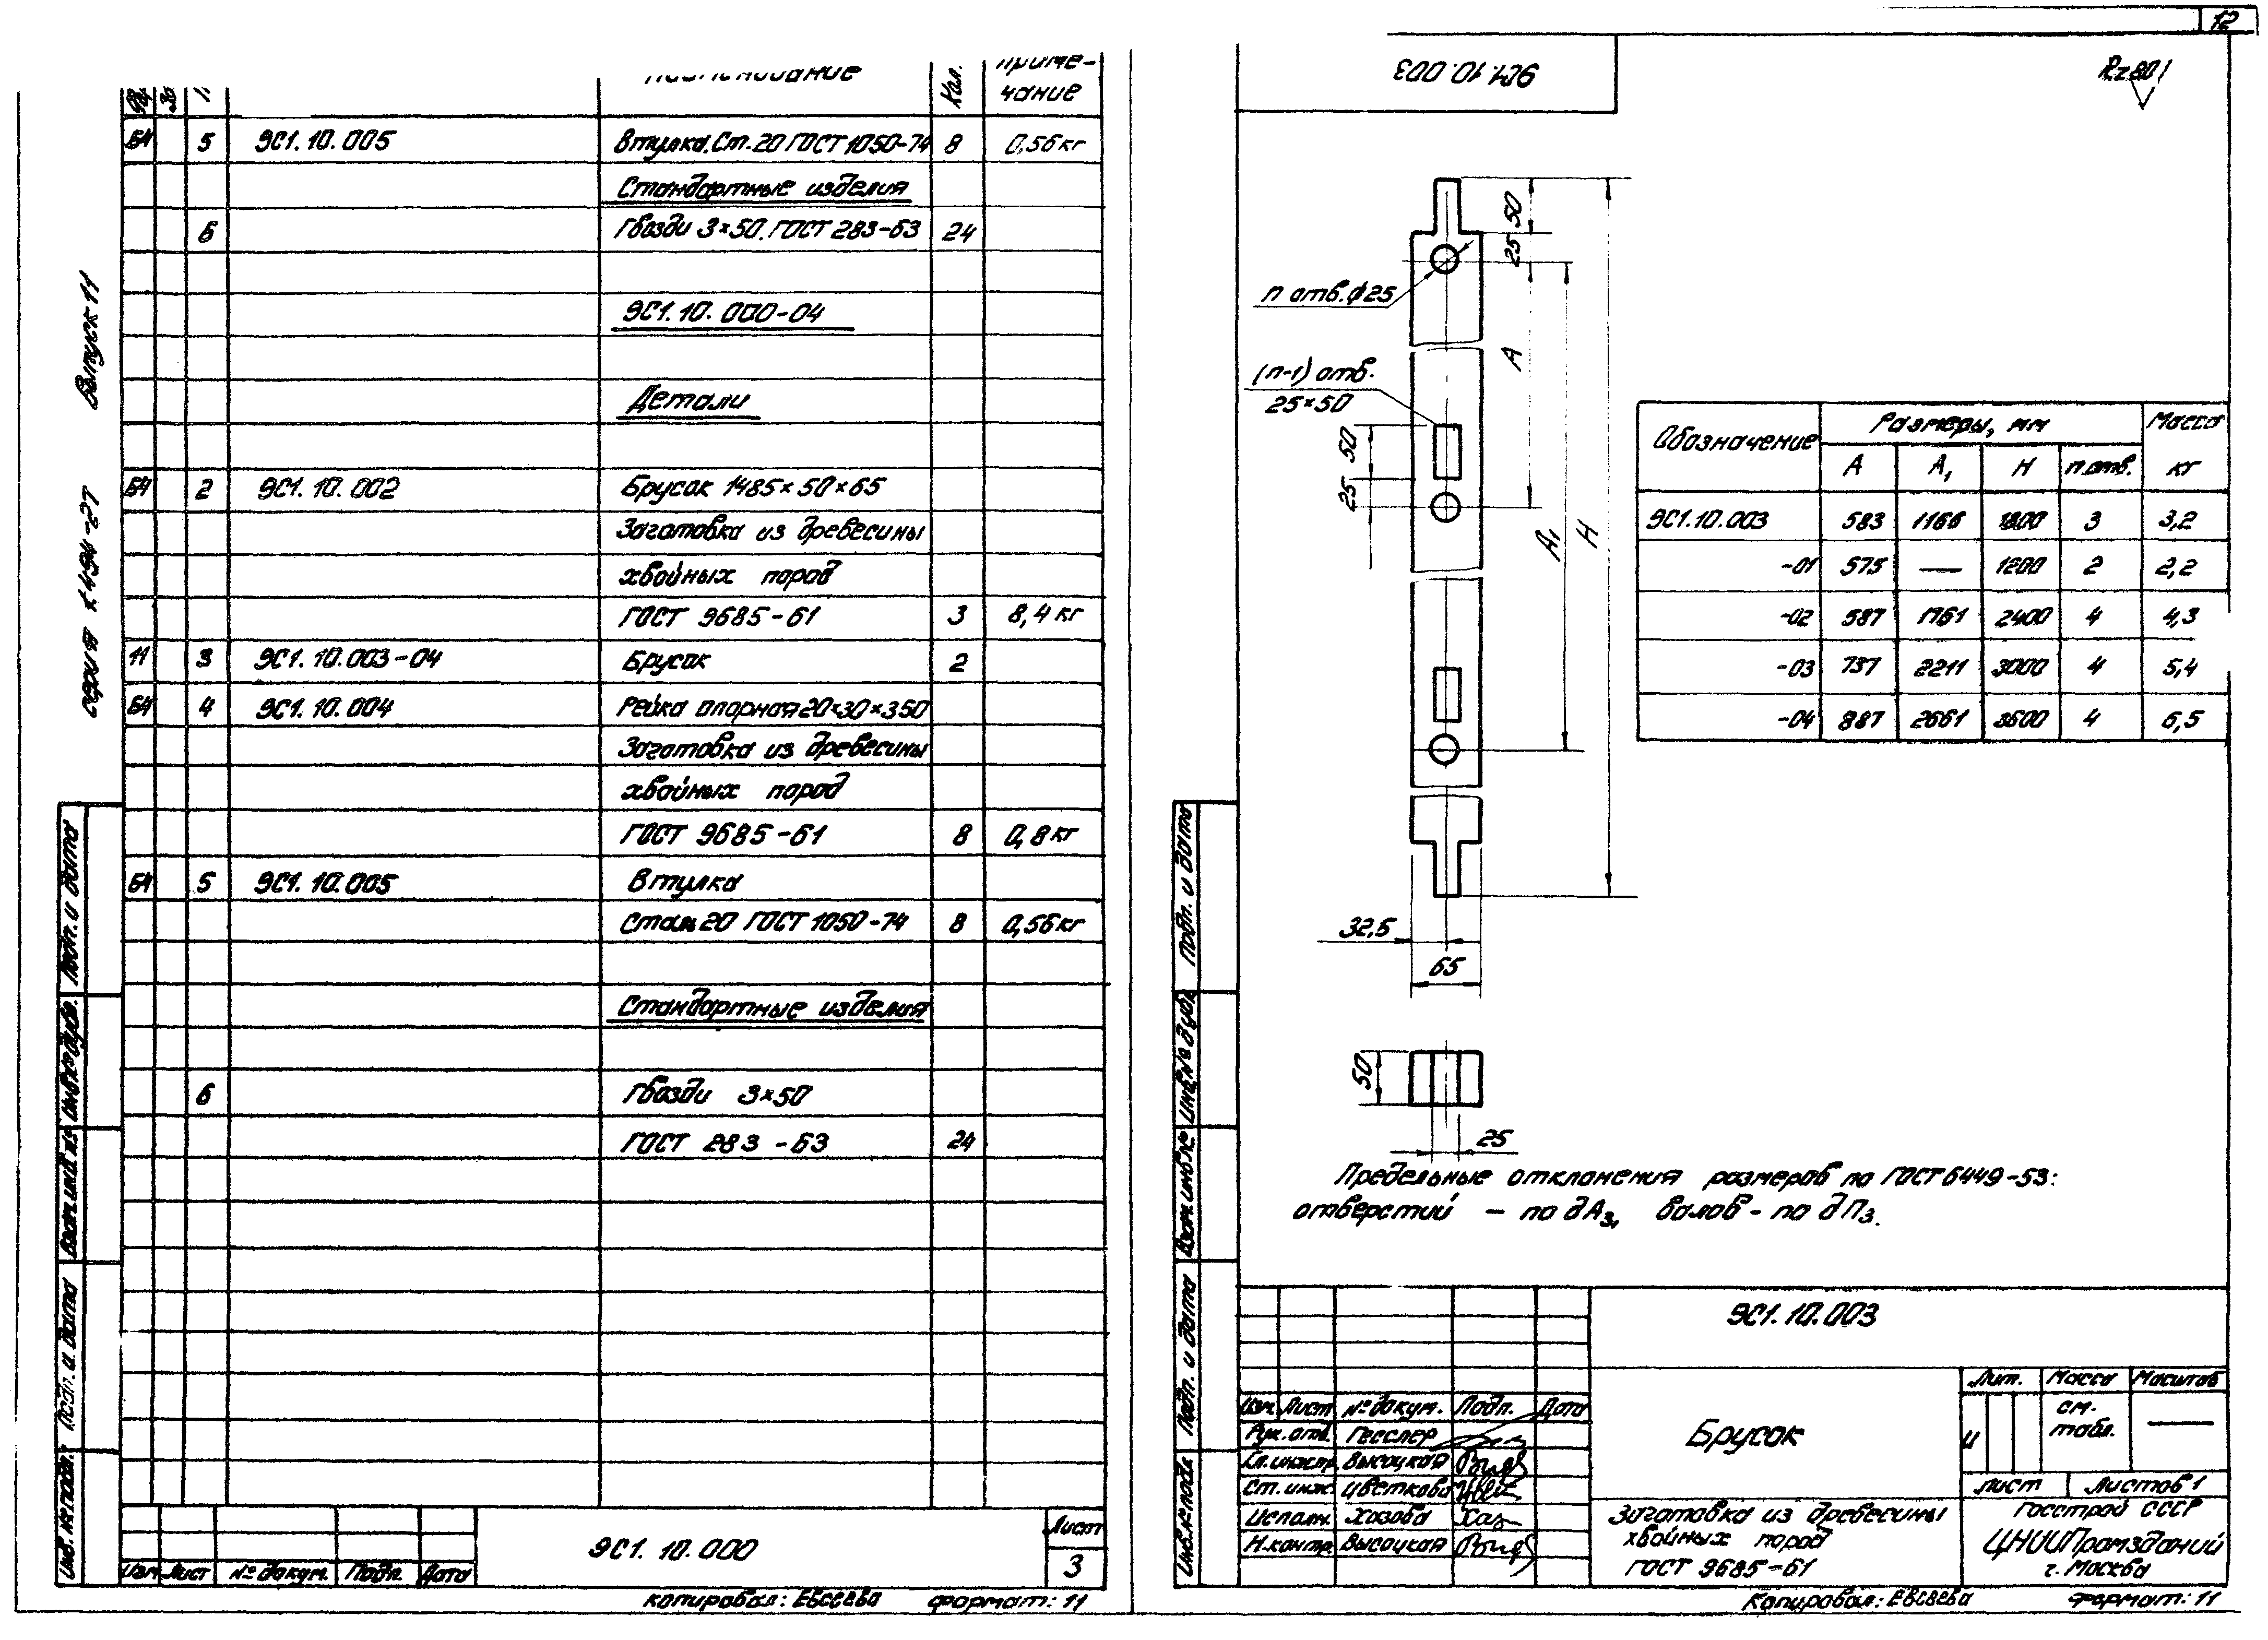 12
Наименование Кол. Приме-
чание
БЧ 5 ЭС1.10.005 Втулка. Ст. 20 ГОСТ 1050-74 8 0,56 кг
Стандартные изделия
6 Гвозди 3×50. ГОСТ 283-63 24
ЭС1.10.000-04
Детали
БЧ 2 ЭС1.10.002 Брусок 1485×50×65
Заготовка из древесины
хвойных пород
ГОСТ 9685-61 3 8,4 кг
11 3 ЭС1.10.003-04 Брусок 2
БЧ 4 ЭС1.10.004 Рейка опорная 20×30×350
Заготовка из древесины
хвойных пород
ГОСТ 9685-61 8 0,8 кг
БЧ 5 ЭС1.10.005 Втулка
Сталь 20 ГОСТ 1050-74 8 0,56 кг
Стандартные изделия
6 Гвозди 3×50
ГОСТ 283-63 24
серия 1.494-27 Выпуск 11
Инв. № подл. Подп. и дата Взам. инв. № Инв. № дубл. Подп. и дата
Изм Лист № докум. Подп. Дата
ЭС1.10.000
Лист
3
Копировал: Евсеева формат: 11
ЭС1.10.003
Rz80
50
25
n отв. ϕ25
А
(n-1) отв.
25×50
50
25
А₁
Н
32,5
65
50
25
Обозначение Размеры, мм Масса
А А₁ Н n отв. кг
ЭС1.10.003 583 1166 1800 3 3,2
-01 575 — 1200 2 2,2
-02 587 1761 2400 4 4,3
-03 737 2211 3000 4 5,4
-04 887 2661 3600 4 6,5
Предельные отклонения размеров по ГОСТ 6449-53:
отверстий - по дА₃, валов - по дП₃.
Инв. № подл. Подп. и дата Взам. инв. № Инв. № дубл. Подп. и дата
ЭС1.10.003
Изм. Лист № докум. Подп. Дата
Рук. отд. Гесслер
Гл. инж. пр. Высоцкая
Ст. инж. Цветкова
Исполн. Хазова Хаз
Н. контр. Высоцкая
Брусок
Лит. Масса Масштаб
И см.
табл. —
Лист Листов 1
Заготовка из древесины
хвойных пород
ГОСТ 9685-61
Госстрой СССР
ЦНИИПромзданий
г. Москва
Копировал: Евсеева Формат: 11